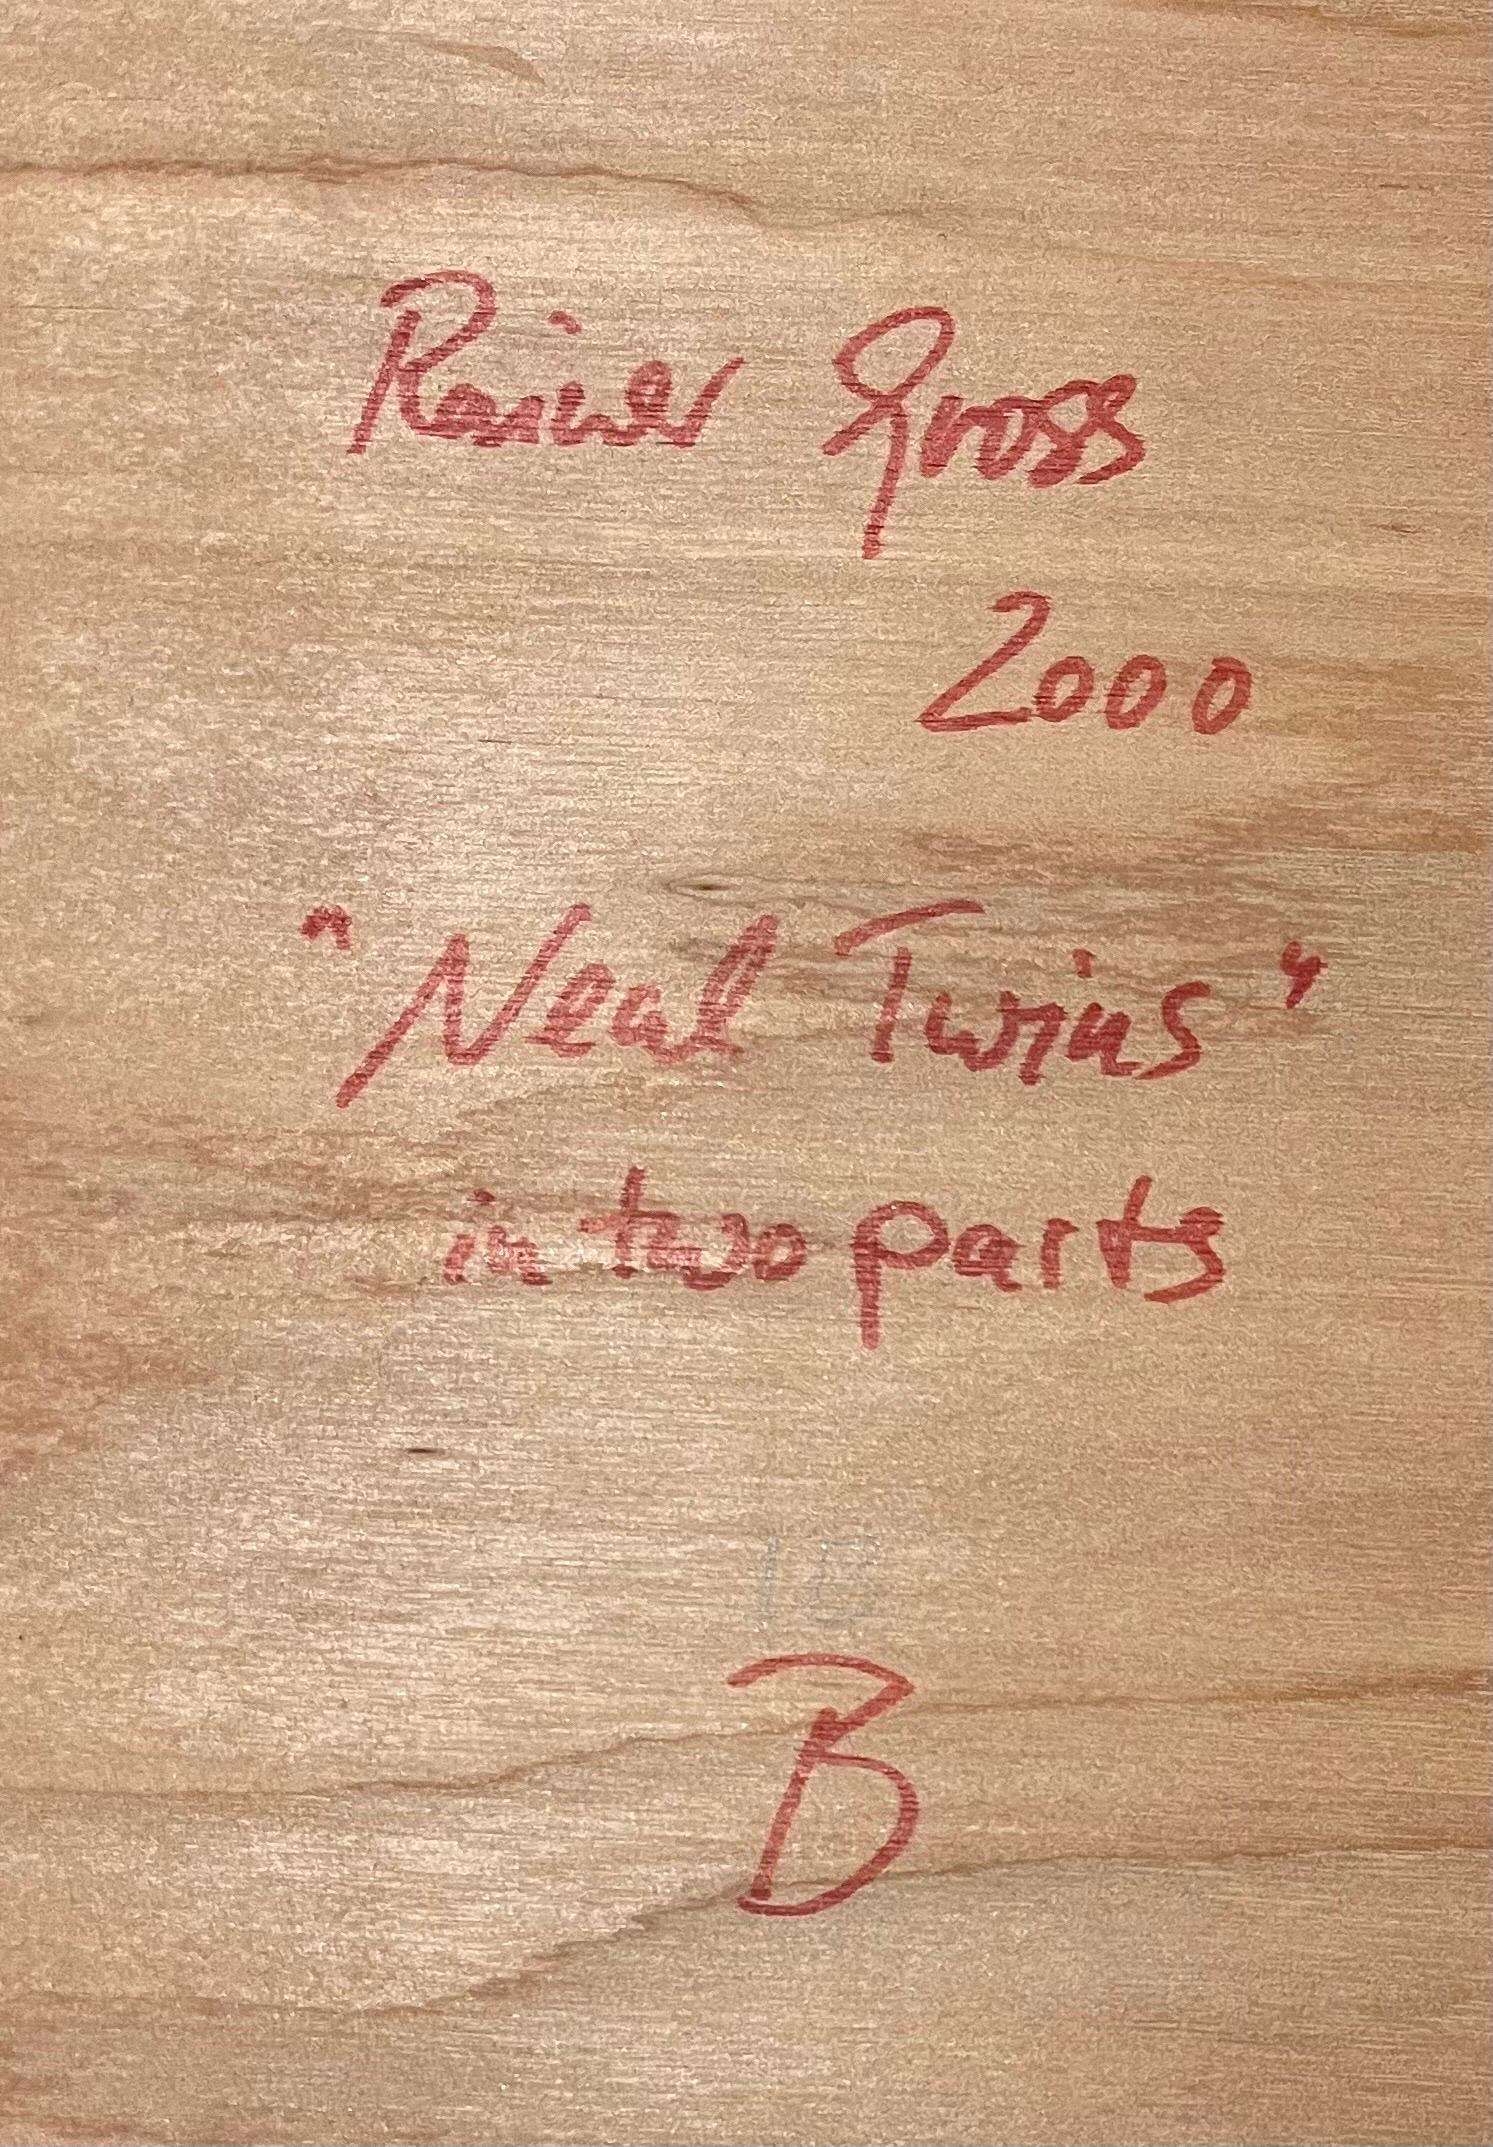 Rainer Gross
2000
"Neal Twins"
in two parts
B